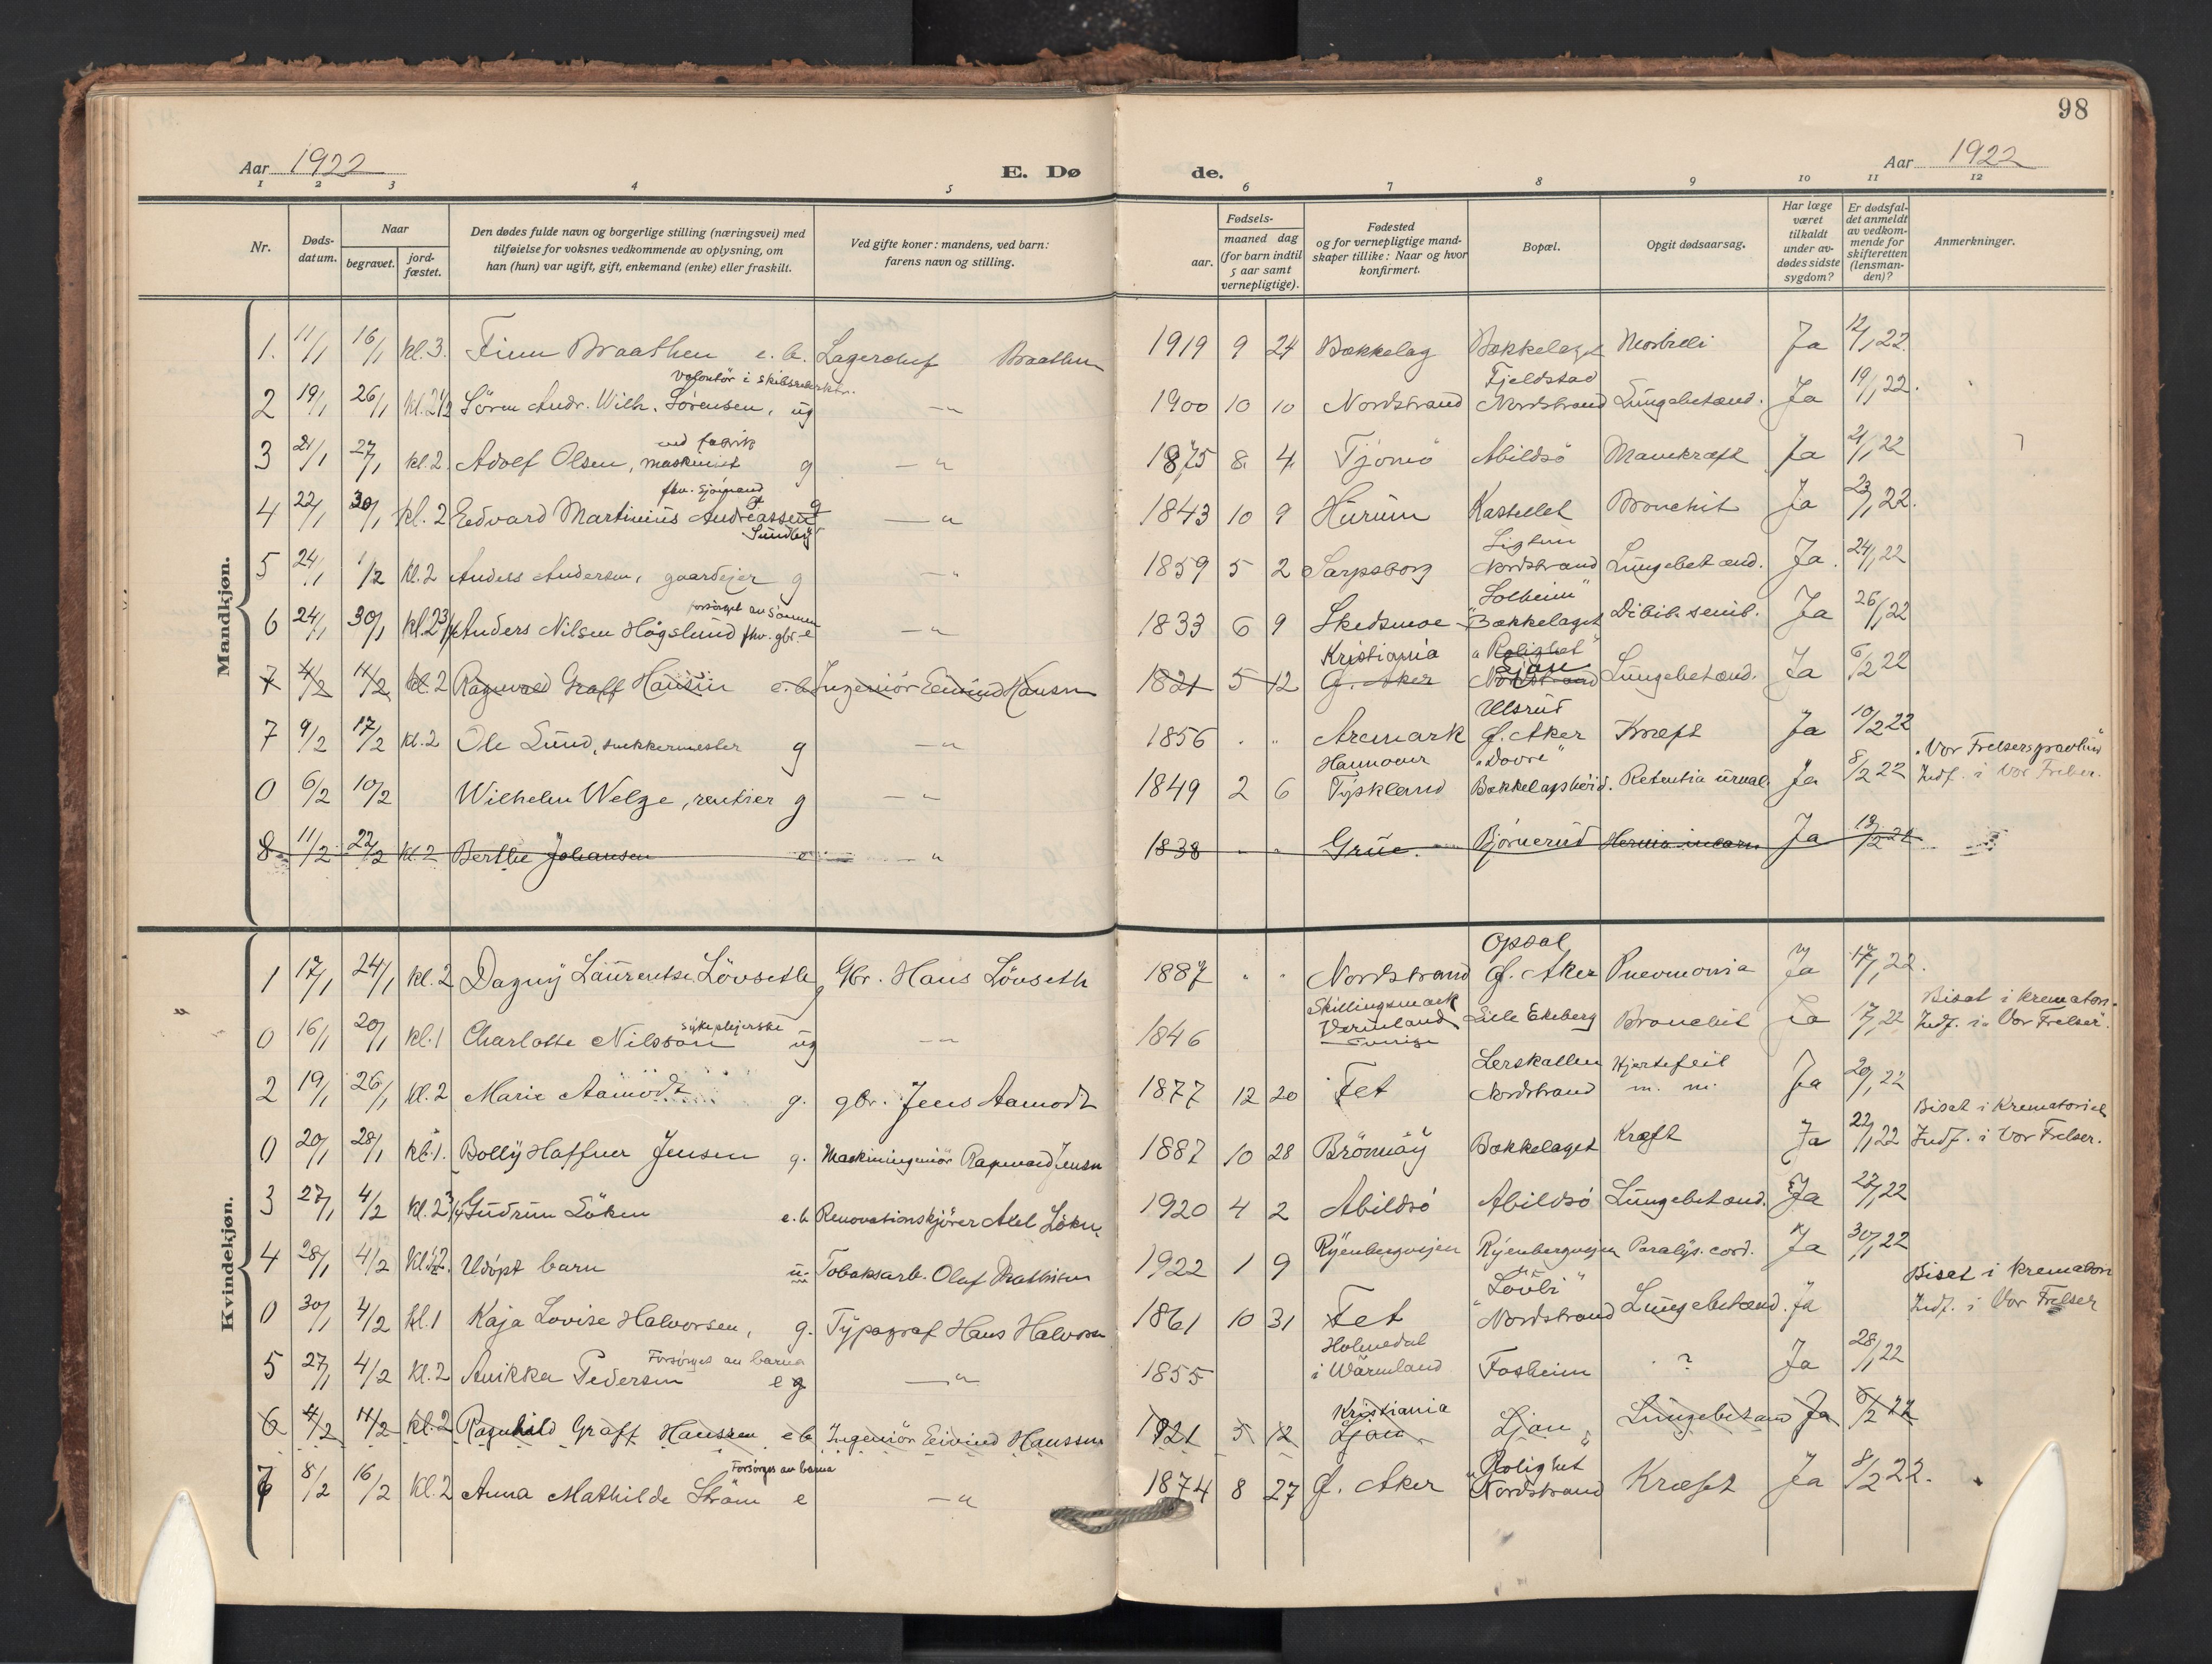 98
Aar 1922 E. Dø de. Aar 1922
1 2 3 4 5 6 7 8 9 10 11 12
Nr. Døds-datum. Naar begravet. jord-fæstet. Den dødes fulde navn og borgerlige stilling (næringsvei) med tilføielse for voksnes vedkommende av oplysning, om han (hun) var ugift, gift, enkemand (enke) eller fraskilt. Ved gifte koner: mandens, ved barn: farens navn og stilling. Fødsels- aar. maaned dag (for barn indtil 5 aar samt vernepligtige). Fødested og for vernepligtige mand-skaper tillike: Naar og hvor konfirmert. Bopæl. Opgit dødsaarsag. Har læge været tilkaldt under av-dødes sidste sygdom? Er dødsfal-det anmeldt av vedkom-mende for skifteretten (lensman-den)? Anmerkninger.
Mandkjøn.
1. 11/1 16/1 kl. 3. Finn Braathen e. b. Lagerchef Braathen 1919 9 24 Bækkelag Bækkelaget Morbilli Ja 12/1 22.
volontör i skibsmæktr. Fjeldstad
2 19/1 26/1 kl. 2 1/2 Sören Andr. Wilh. Sörensen, ug —"— 1900 10 10 Nordstrand Nordstrand Lungebetænd. Ja 19/1 22.
ved fabrik
3 21/1 27/1 kl. 2 Adolf Olsen, maskinist g —"— 1875 8. 4. Tjömö Abildsö Mavekræft Ja 21/1 22
fhv. sjömand
4 22/1 30/1 kl. 2 Edvard Martinius Andreassen g —"— 1843 10 9 Hurum Kastellet Bronchit Ja 23/1 22.
Sundby Ligtun
5 24/1 1/2 kl. 2 Anders Andersen, gaardejer g —"— 1859 5 2 Sarpsborg Nordstrand Lungebetænd. Ja. 24/1 22
forsörget av sönnen "Solheim"
6 24/1 30/1 kl. 2 3/4 Anders Nilsen Högslund fhv. gbr. e —"— 1833 6 9 Skedsmoe Bækkelaget Debil. senil. Ja 26/1 22
Kristiania "Rolighet" Ljan
7 4/2 11/2 kl. 2 Ragnvald Graff Hansen e. b. Ingeniör Eivind Hansen 1821 5 12 Ø. Aker Nordstrand Lungebetænd. Ja 6/2 22
Ulsrud
7 9/2 17/2 kl. 2 Ole Lund, snekkermester g —"— 1856 " " Aremark Ø. Aker Kræft Ja 10/2 22
Hannover "Dovre" "Vor Frelsers gravlund"
0 6/2 10/2 Wilhelm Welge, rentier g —"— 1849 2 6 Tyskland Bækkelagshöid. Retentia urinal. Ja 8/2 22 Indf. i Vor Frelser.
8 11/2 22/2 kl. 2 Berthe Johansen e —"— 1838 " " Grue. Björnerud Hernia incarn. Ja 13/2 22
Kvindekjøn.
Opsal
1 17/1 24/1 kl. 2 Dagny Laurentse Lövseth g Gbr. Hans Lövseth 1887 " " Nordstrand Ø. Aker Pneumonia Ja 17/1 22.
sykeplejerske Skillingsmark Bisat i krematori.
0 16/1 20/1 kl. 1 Charlotte Nilsson ug —"— 1846 Vermland Sverige Lille Ekeberg Bronchit Ja 17/1 22 Indf. i "Vor Frelser".
Lerskallen Hjertefeil
2 19/1 26/1 kl. 2 Marie Aamodt g. gbr. Jens Aamodt 1877 12 20 Fet Nordstrand m. m. Ja 20/1 22
Bisat i Krematoriet
0 20/1 28/1 kl. 1. Bolly Haffner Jensen g. Maskiningeniör Ragnvald Jensen 1887 10 28 Brönnöy Bækkelaget Kræft Ja 22/1 22 Indf. i Vor Frelser.
3 27/1 4/2 kl. 2 3/4 Gudrun Löken e. b Renovationskjörer Axel Löken 1920 4 2 Abildsö Abildsö Lungebetænd. Ja 27/1 22
4 28/1 4/2 Kl. 2. Udöpt barn u. Tobaksarb. Olaf Mathisen 1922 1 9 Ryenbergveien Ryenbergveien Paralys. cord. Ja 30/1 22
"Lövli" Biset i krematori
0 30/1 4/2 kl. 1 Kaja Lovise Halvorsen, g. Typograf Hans Halvorsen 1861 10 31 Fet Nordstrand Lungebetænd. ja Indf. i Vor Frelser
Forsörges av barna Holmedal
5 27/1 4/2 kl. 2 Anikka Pedersen e —"— 1855 i Wärmland Fosheim ? Ja 28/1 22
Kristiania
6 4/2 11/2 kl. 2 Ragnhild Graff Hanssen e b Ingeniör Eivind Hanssen 1921 5 12 Ljan Ljan Lungebetænd Ja 6/2 22
Forsörges av barna "Rolighet"
6 8/2 16/2 kl. 2 Anna Mathilde Ström e —"— 1874 8 27 Ø. Aker Nordstrand Kræft Ja 8/2 22.